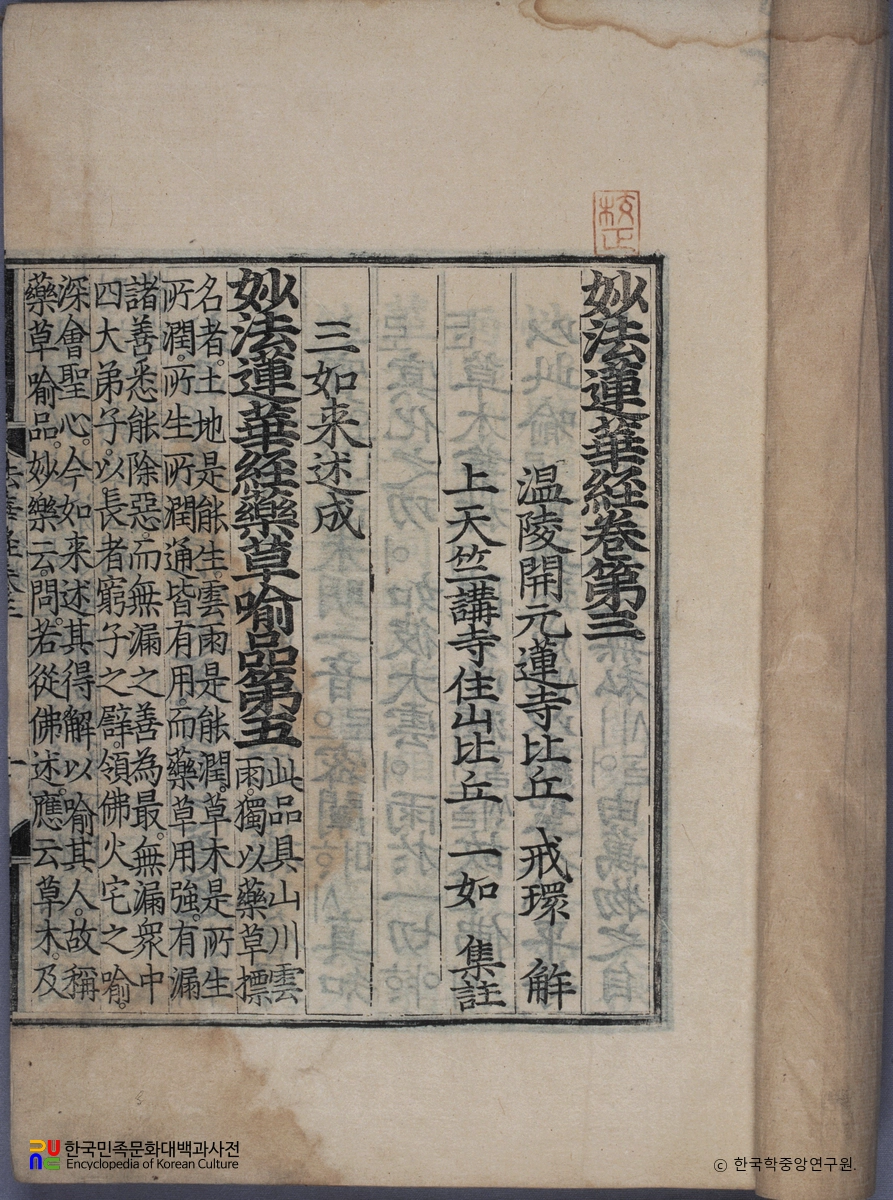 校正
妙法蓮華經卷第三
温陵開元蓮寺比丘 戒環 解
上天竺講寺住山比丘 一如 集註
三如来述成
妙法蓮華經藥草喻品第五
此品具山川雲
雨。獨以藥草摽
名者。土地是能生。雲雨是能潤。草木是所生
所潤。所生所潤通皆有用。而藥草用強。有漏
諸善悉能除惡。而無漏之善為最。無漏衆中
四大弟子。以長者窮子之譬。領佛火宅之喻。
深會聖心。今如来述其得解以喻其人。故稱
藥草喻品。妙樂云。問。若從佛述。應云草木。及
한국민족문화대백과사전
Encyclopedia of Korean Culture
ⓒ 한국학중앙연구원.